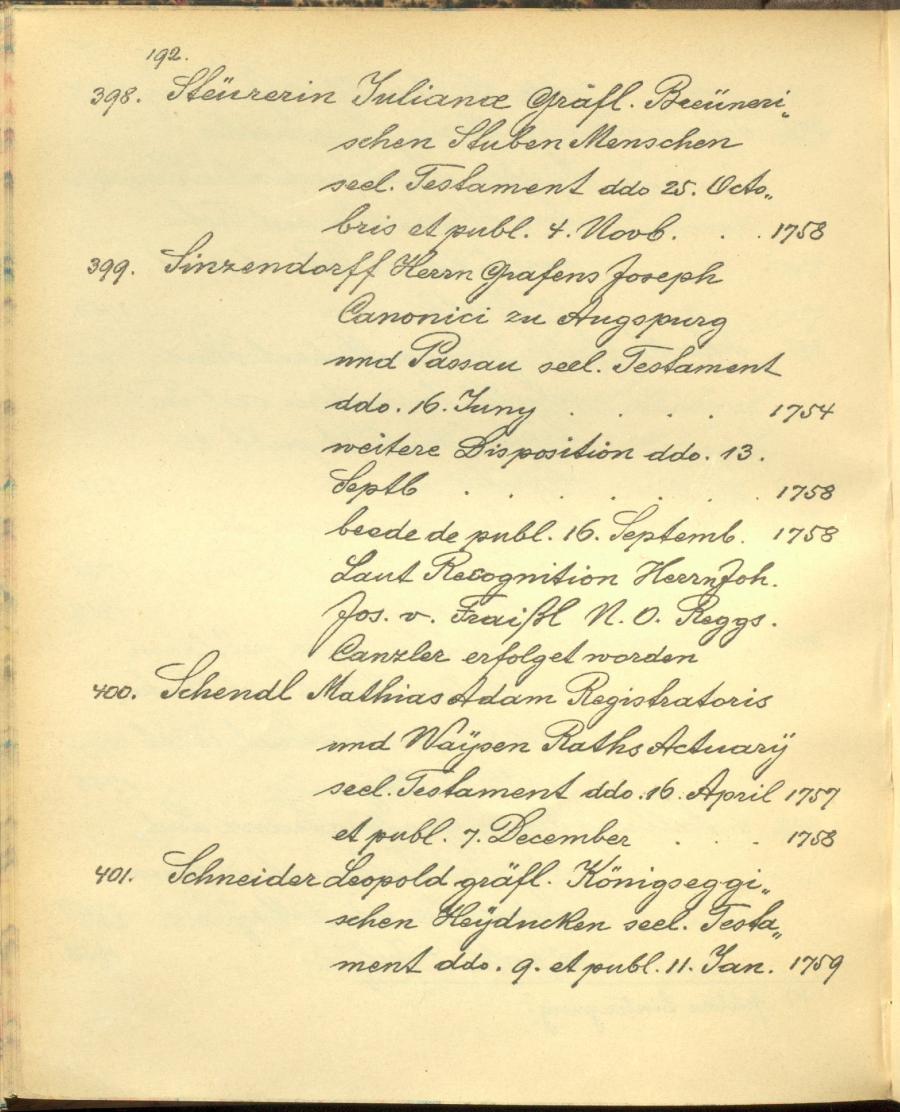 192.
398. Steürerin Julianæ Gräfl. Breüneri„
schen Stuben Menschen
seel. Testament ddo 25. Octo„
bris et publ. 4. Novb. . . 1758
399. Sinzendorff Herrn Grafens Joseph
Canonici zu Augspurg
und Passau seel. Testament
ddo. 16. Juny . . . . 1754
weitere Disposition ddo. 13.
Septb . . . . . . . 1758
beede de publ. 16. Septemb. 1758
Laut Recognition Herrn Joh.
Jos. v. Fraißl N. O. Reggs.
Canzler erfolget worden
400. Schendl Mathias Adam Registratoris
und Waÿsen Raths Actuarÿ
seel. Testament ddo. 16. April 1757
et publ. 7. December . . . 1758
401. Schneider Leopold gräfl. Königseggi„
schen Heÿducken seel. Testa„
ment ddo. 9. et publ. 11. Jan. 1759